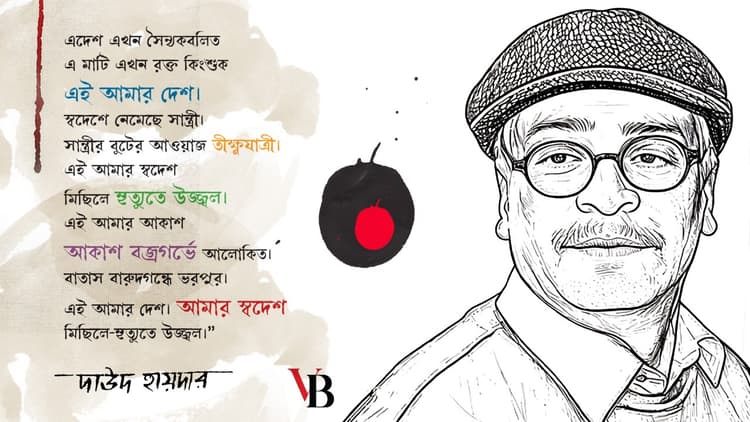 এদেশ এখন সৈন্যকবলিত
এ মাটি এখন রক্ত কিংশুক
এই আমার দেশ।
স্বদেশে নেমেছে সান্ত্রী।
সান্ত্রীর বুটের আওয়াজ তীক্ষ্ণযাত্রী।
এই আমার স্বদেশ
মিছিলে মৃত্যুতে উজ্জ্বল।
এই আমার আকাশ
আকাশ বজ্রগর্ভে আলোকিত।
বাতাস বারুদগন্ধে ভরপুর।
এই আমার দেশ। আমার স্বদেশ
মিছিলে-মৃত্যুতে উজ্জ্বল।”
দাউদ হায়দার
VB